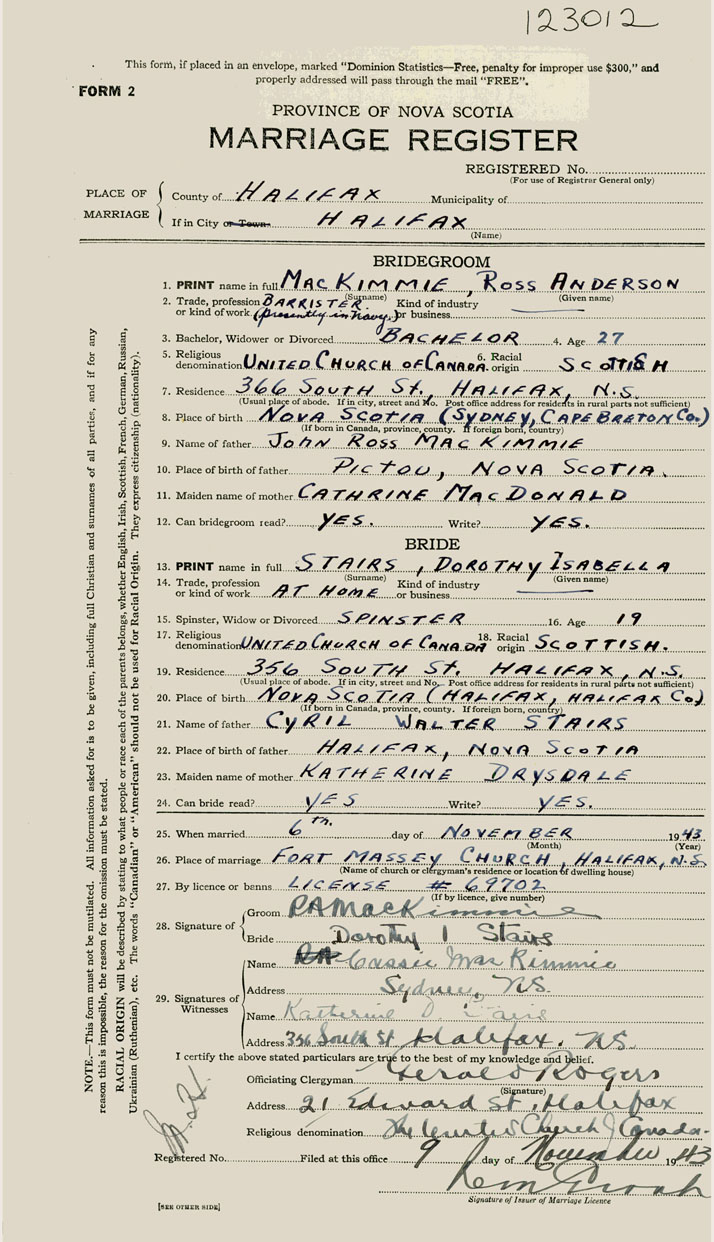 123012
This form, if placed in an envelope, marked "Dominion Statistics—Free, penalty for improper use $300," and
properly addressed will pass through the mail "FREE".
FORM 2
PROVINCE OF NOVA SCOTIA
MARRIAGE REGISTER
REGISTERED No.
(For use of Registrar General only)
PLACE OF MARRIAGE
County of HALIFAX Municipality of
If in City or Town HALIFAX
(Name)
BRIDEGROOM
1. PRINT name in full MacKIMMIE, ROSS ANDERSON
(Surname) (Given name)
2. Trade, profession or kind of work BARRISTER (presently in Navy.) Kind of industry or business
3. Bachelor, Widower or Divorced BACHELOR 4. Age 27
5. Religious denomination UNITED CHURCH OF CANADA. 6. Racial origin SCOTTISH
7. Residence 366 SOUTH St., HALIFAX, N.S.
(Usual place of abode. If in city, street and No. Post office address for residents in rural parts not sufficient)
8. Place of birth NOVA SCOTIA (SYDNEY, CAPE BRETON Co.)
(If born in Canada, province, county. If foreign born, country)
9. Name of father JOHN ROSS MACKIMMIE
10. Place of birth of father PICTOU, NOVA SCOTIA.
11. Maiden name of mother CATHRINE MACDONALD
12. Can bridegroom read? YES. Write? YES.
BRIDE
13. PRINT name in full STAIRS, DOROTHY ISABELLA
(Surname) (Given name)
14. Trade, profession or kind of work AT HOME Kind of industry or business
15. Spinster, Widow or Divorced SPINSTER 16. Age 19
17. Religious denomination UNITED CHURCH OF CANADA 18. Racial origin SCOTTISH.
19. Residence 356 SOUTH St. HALIFAX, N.S.
(Usual place of abode. If in city, street and No. Post office address for residents in rural parts not sufficient)
20. Place of birth NOVA SCOTIA (HALIFAX, HALIFAX Co.)
(If born in Canada, province, county. If foreign born, country)
21. Name of father CYRIL WALTER STAIRS
22. Place of birth of father HALIFAX, NOVA SCOTIA
23. Maiden name of mother KATHERINE DRYSDALE
24. Can bride read? YES Write? YES.
25. When married 6th. day of NOVEMBER 1943
(Month) (Year)
26. Place of marriage FORT MASSEY CHURCH, HALIFAX, N.S.
(Name of church or clergyman's residence or location of dwelling house)
27. By licence or banns LICENSE # 69702
(If by licence, give number)
28. Signature of
Groom RAMacKimmie
Bride Dorothy I Stairs
29. Signatures of Witnesses
Name Cassie MacKimmie
Address Sydney, N.S.
Name Katherine D. Stairs
Address 356 South St Halifax, N.S.
I certify the above stated particulars are true to the best of my knowledge and belief.
Officiating Clergyman Gerald Rogers
(Signature)
Address 21 Edward St, Halifax
Religious denomination The United Church of Canada.
Registered No. Filed at this office 9 day of November 1943
Signature of Issuer of Marriage Licence
[SEE OTHER SIDE]
NOTE.—This form must not be mutilated. All information asked for is to be given, including full Christian and surnames of all parties, and if for any
reason this is impossible, the reason for the omission must be stated.
RACIAL ORIGIN will be described by stating to what people or race each of the parents belongs, whether English, Irish, Scottish, French, German, Russian,
Ukrainian (Ruthenian), etc. The words "Canadian" or "American" should not be used for Racial Origin. They express citizenship (nationality).